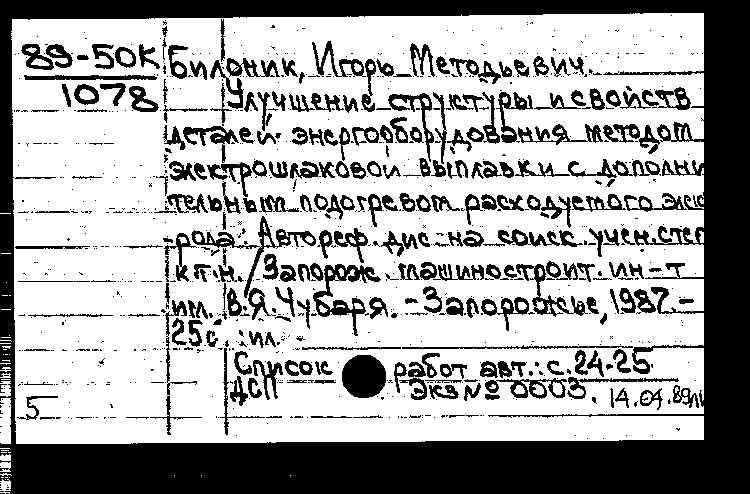 89-50К
1078
Билоник, Игорь Методьевич.
Улучшение структуры и свойств
деталей энергооборудования методом
электрошлаковой выплавки с дополни
тельным подогревом расходуемого элек
рода: Автореф. дис. на соиск. учен. степ
к.т.н. / Запорож. машиностроит. ин-т
им. В.Я. Чубаря. - Запорожье, 1987. -
25с. : ил.
Список работ авт.: с. 24-25
ДСП Экз № 0003.
14.04.89
5